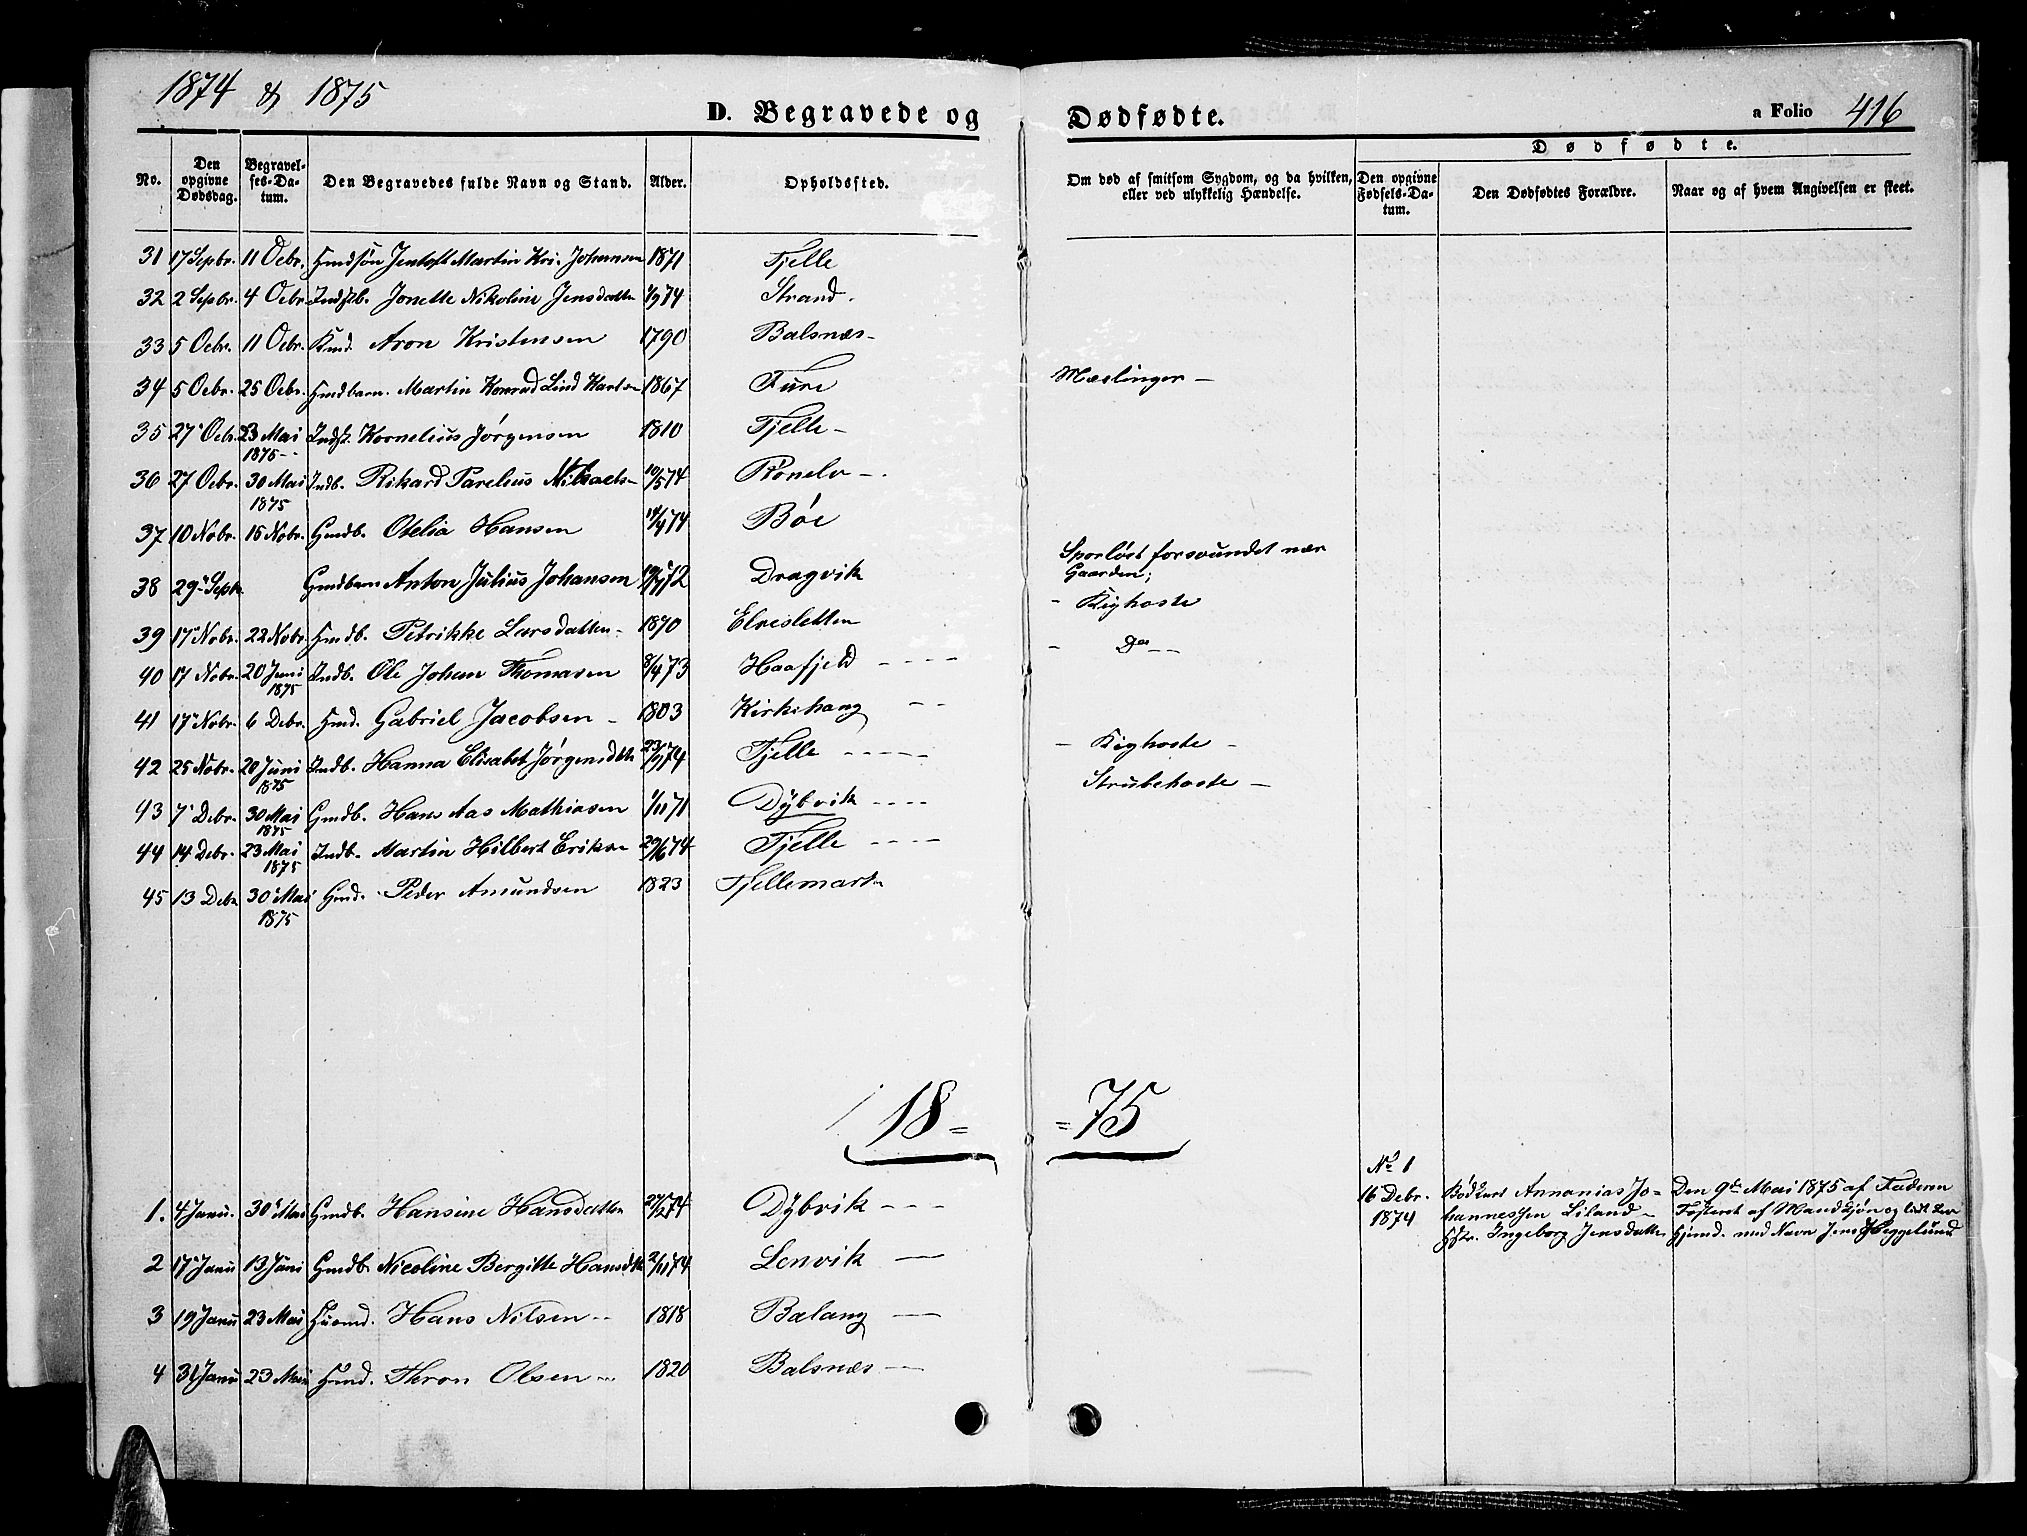 1874 & 1875
D. Begravede og Dødfødte. a Folio 416
Dødfødte.
No. Den opgivne Dødsdag. Begravelses-Datum. Den Begravedes fulde Navn og Stand. Alder. Opholdssted. Om død af smitsom Sygdom, og da hvilken, eller ved ulykkelig Hændelse. Den opgivne Fødsels-Datum. Den Dødfødtes Forældre. Naar og af hvem Angivelsen er skeet.
31 17 Sepbr. 11 Ocbr. Gmdsøn Jentoft Martin Kri. Johansen 1871 Fjelle
32 2 Sepbr. 4 Ocbr. Indstb. Jonette Nikoline Jensdatter 1/9 74 Strand.
33 5 Ocbr. 11 Ocbr. Kmd. Aron Kristensen 1790 Balsnæs -
34 5 Ocbr. 25 Ocbr. Gmdbarn. Martin Konrad Lind 1867 Fure Mæslinger -
35 27 Ocbr. 23 Mai 1875 - Indst. Kornelius Jørgensen 1810 Fjelle -
36 27 Ocbr. 30 Mai 1875 Indb. Rikard Parelius 10/5 74 Rønelv -
37 10 Nobr. 15 Nobr. Gmdb. Otelia Hansen 14/4 74 Bøe
38 29 Septr. Gmdbarn Anton Julius Johansen 19/7 72 Dragvik Sporløst forsvundet nær Gaarden;
39 17 Nobr. 22 Nobr. Gmdb. Petrikke Larsdatter - 1870 Elvesletten - Kighoste
40 17 Nobr. 20 Juni 1875 Indb. Ole Johan Thomasen 8/4 73 Haafjeld - - - - - Do - -
41 17 Nobr. 6 Debr. Gmd. Gabriel Jacobsen - 1803 Kirkehaug - -
42 25 Nobr. 20 Juni 1875 Indb. Hanna Elisabet Jørgensdtr 23/9 74 Fjelle - - - - - Kighoste -
43 7 Debr. 30 Mai 1875 Gmdb. Hans Aas Mathiasen 1/11 71 Dybvik - - - - Strubehoste -
44 14 Debr. 23 Mai 1875 Indb. Martin Hilbert Eriksen 29/6 74 Fjelle - - - -
45 13 Debr 30 Mai 1875 Gmd. Peder Amundsen 1823 Fjellemark
18 = = 75
No 1
1. 4 Janu. 30 Mai Gmdb. Hansine Hansdatter 27/5 74 Dybvik - - - 16 Debr. 1874 Annanias Jo=
hannessen Liland - Ingeborg Jensdatter Den 9de Mai 1875 af Faderen
Fosteret af Mandkjøn og med Navn Jens Heggelund
2 17 Janu 13 Juni Gmdb. Nicoline Bergitte Hansdtr 2/11 74 Lenvik -
3 19 Janu 23 Mai Husmd. Hans Nilsen - - 1818 Balang -
4 31 Janu 23 Mai Gmd. Thron Olsen - - 1820 Balsnæs - -